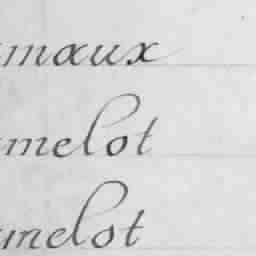 maux
melot
melot